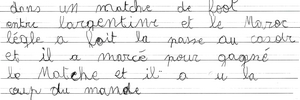 dans un matche de foot
entre largentine et le Maroc
légle a fait la passe au casoir
et il a marcé pour gagné
le Matche et il a u la
coup du mande